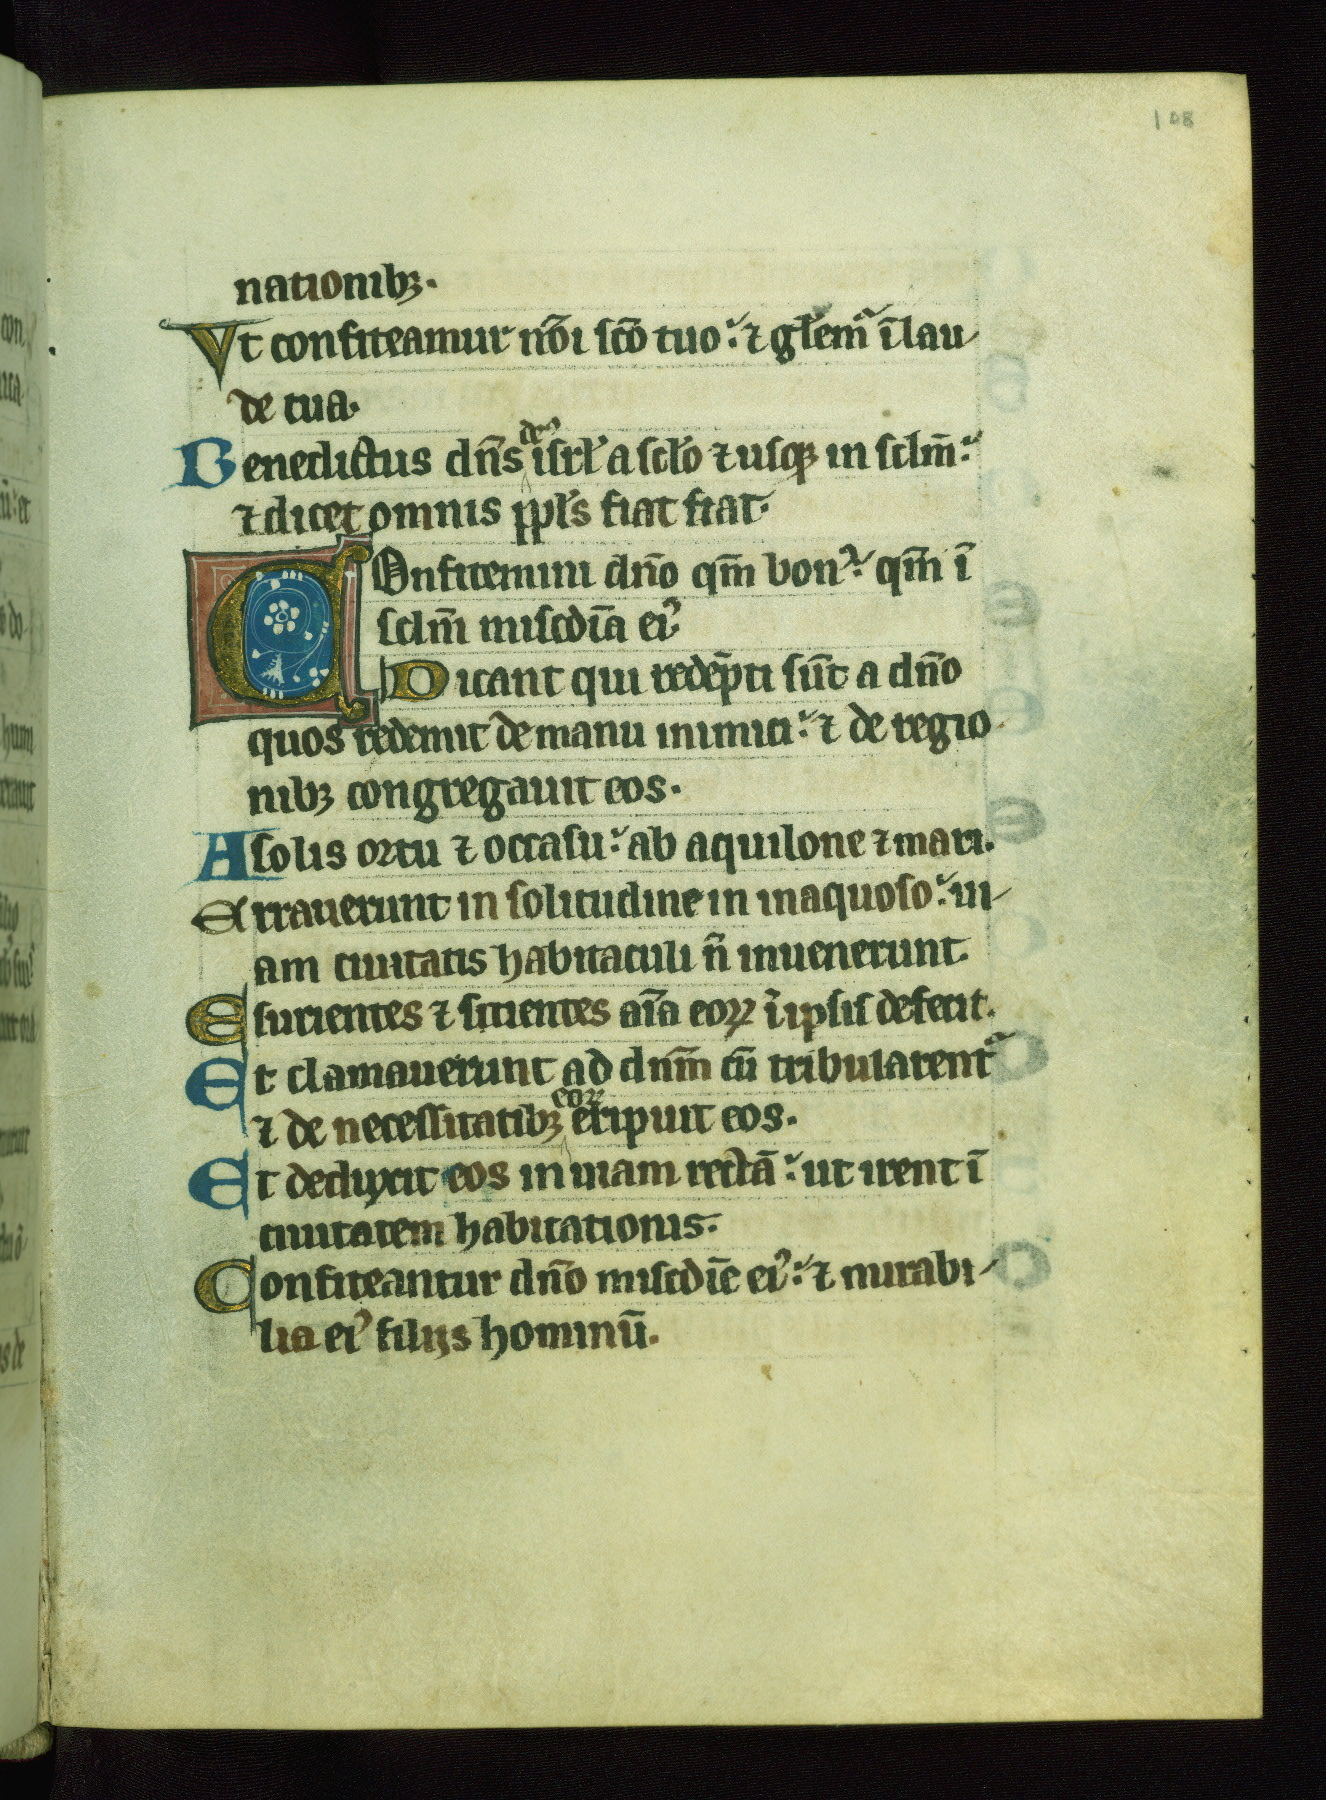 108
nationibꝫ.
Vt confiteamur nōi ſcō tuo: ⁊ gl̄emr̄ ī lau
de tua.
Benedictus dn̄s deꝰ iſrl̄ a ſcl̄o ⁊ uſqꝫ in ſclm̄:
⁊ dicet omnis ppl̄s fiat fiat.
COnfitemini dn̄o qm̄ bonꝰ: qm̄ ī
ſclm̄ miſcd̄ia eiꝰ
Dicant qui redēpti ſūt a dn̄o
quos redemit de manu inimici: ⁊ de regio
nibꝫ congregauit eos.
A ſolis ortu ⁊ occaſu: ab aquilone ⁊ mari.
Errauerunt in ſolitudine in inaquoſo: ui
am ciuitatis habitaculi n̄ inuenerunt.
Eſurientes ⁊ ſitientes aīa eoꝝ ī ipſis defecit.
Et clamauerunt ad dn̄m cū tribularent᷑
⁊ de neceſſitatibꝫ eoꝝ eripuit eos.
Et deduxit eos in uiam rectā: ut irent ī
ciuitatem habitationis.
Confiteantur dn̄o miſcd̄ie eiꝰ: ⁊ mirabi
lia eiꝰ filijs hominū.